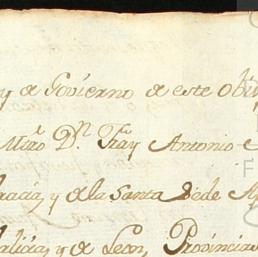 y de Govierno de este Ob
Mro. Dn. Fray Antonio
Gracia, y de la Santa Sede A
alicia, y de Leon, Provincia